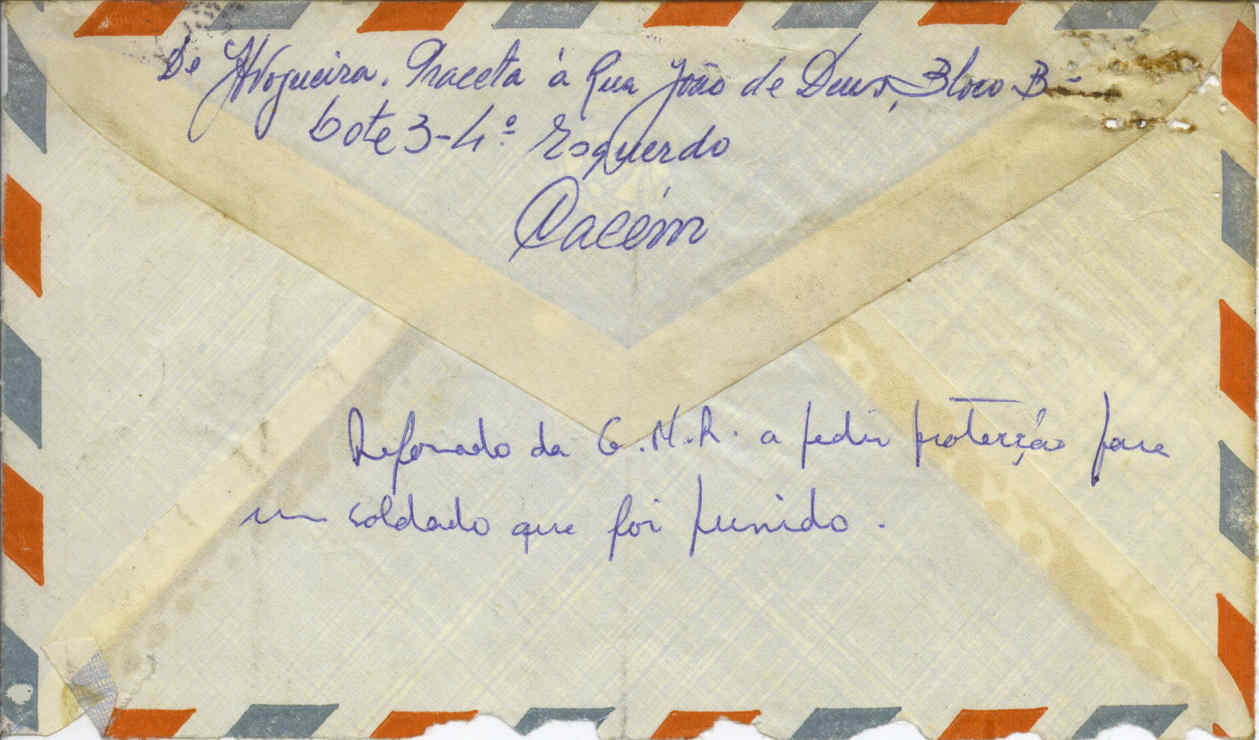 De Nogueira. Praceta à Rua João de Deus, Bloco B-
Lote 3-4º Esquerdo
Cacém
Reformado da G.N.R. a pedir proteção para
um soldado que foi punido.